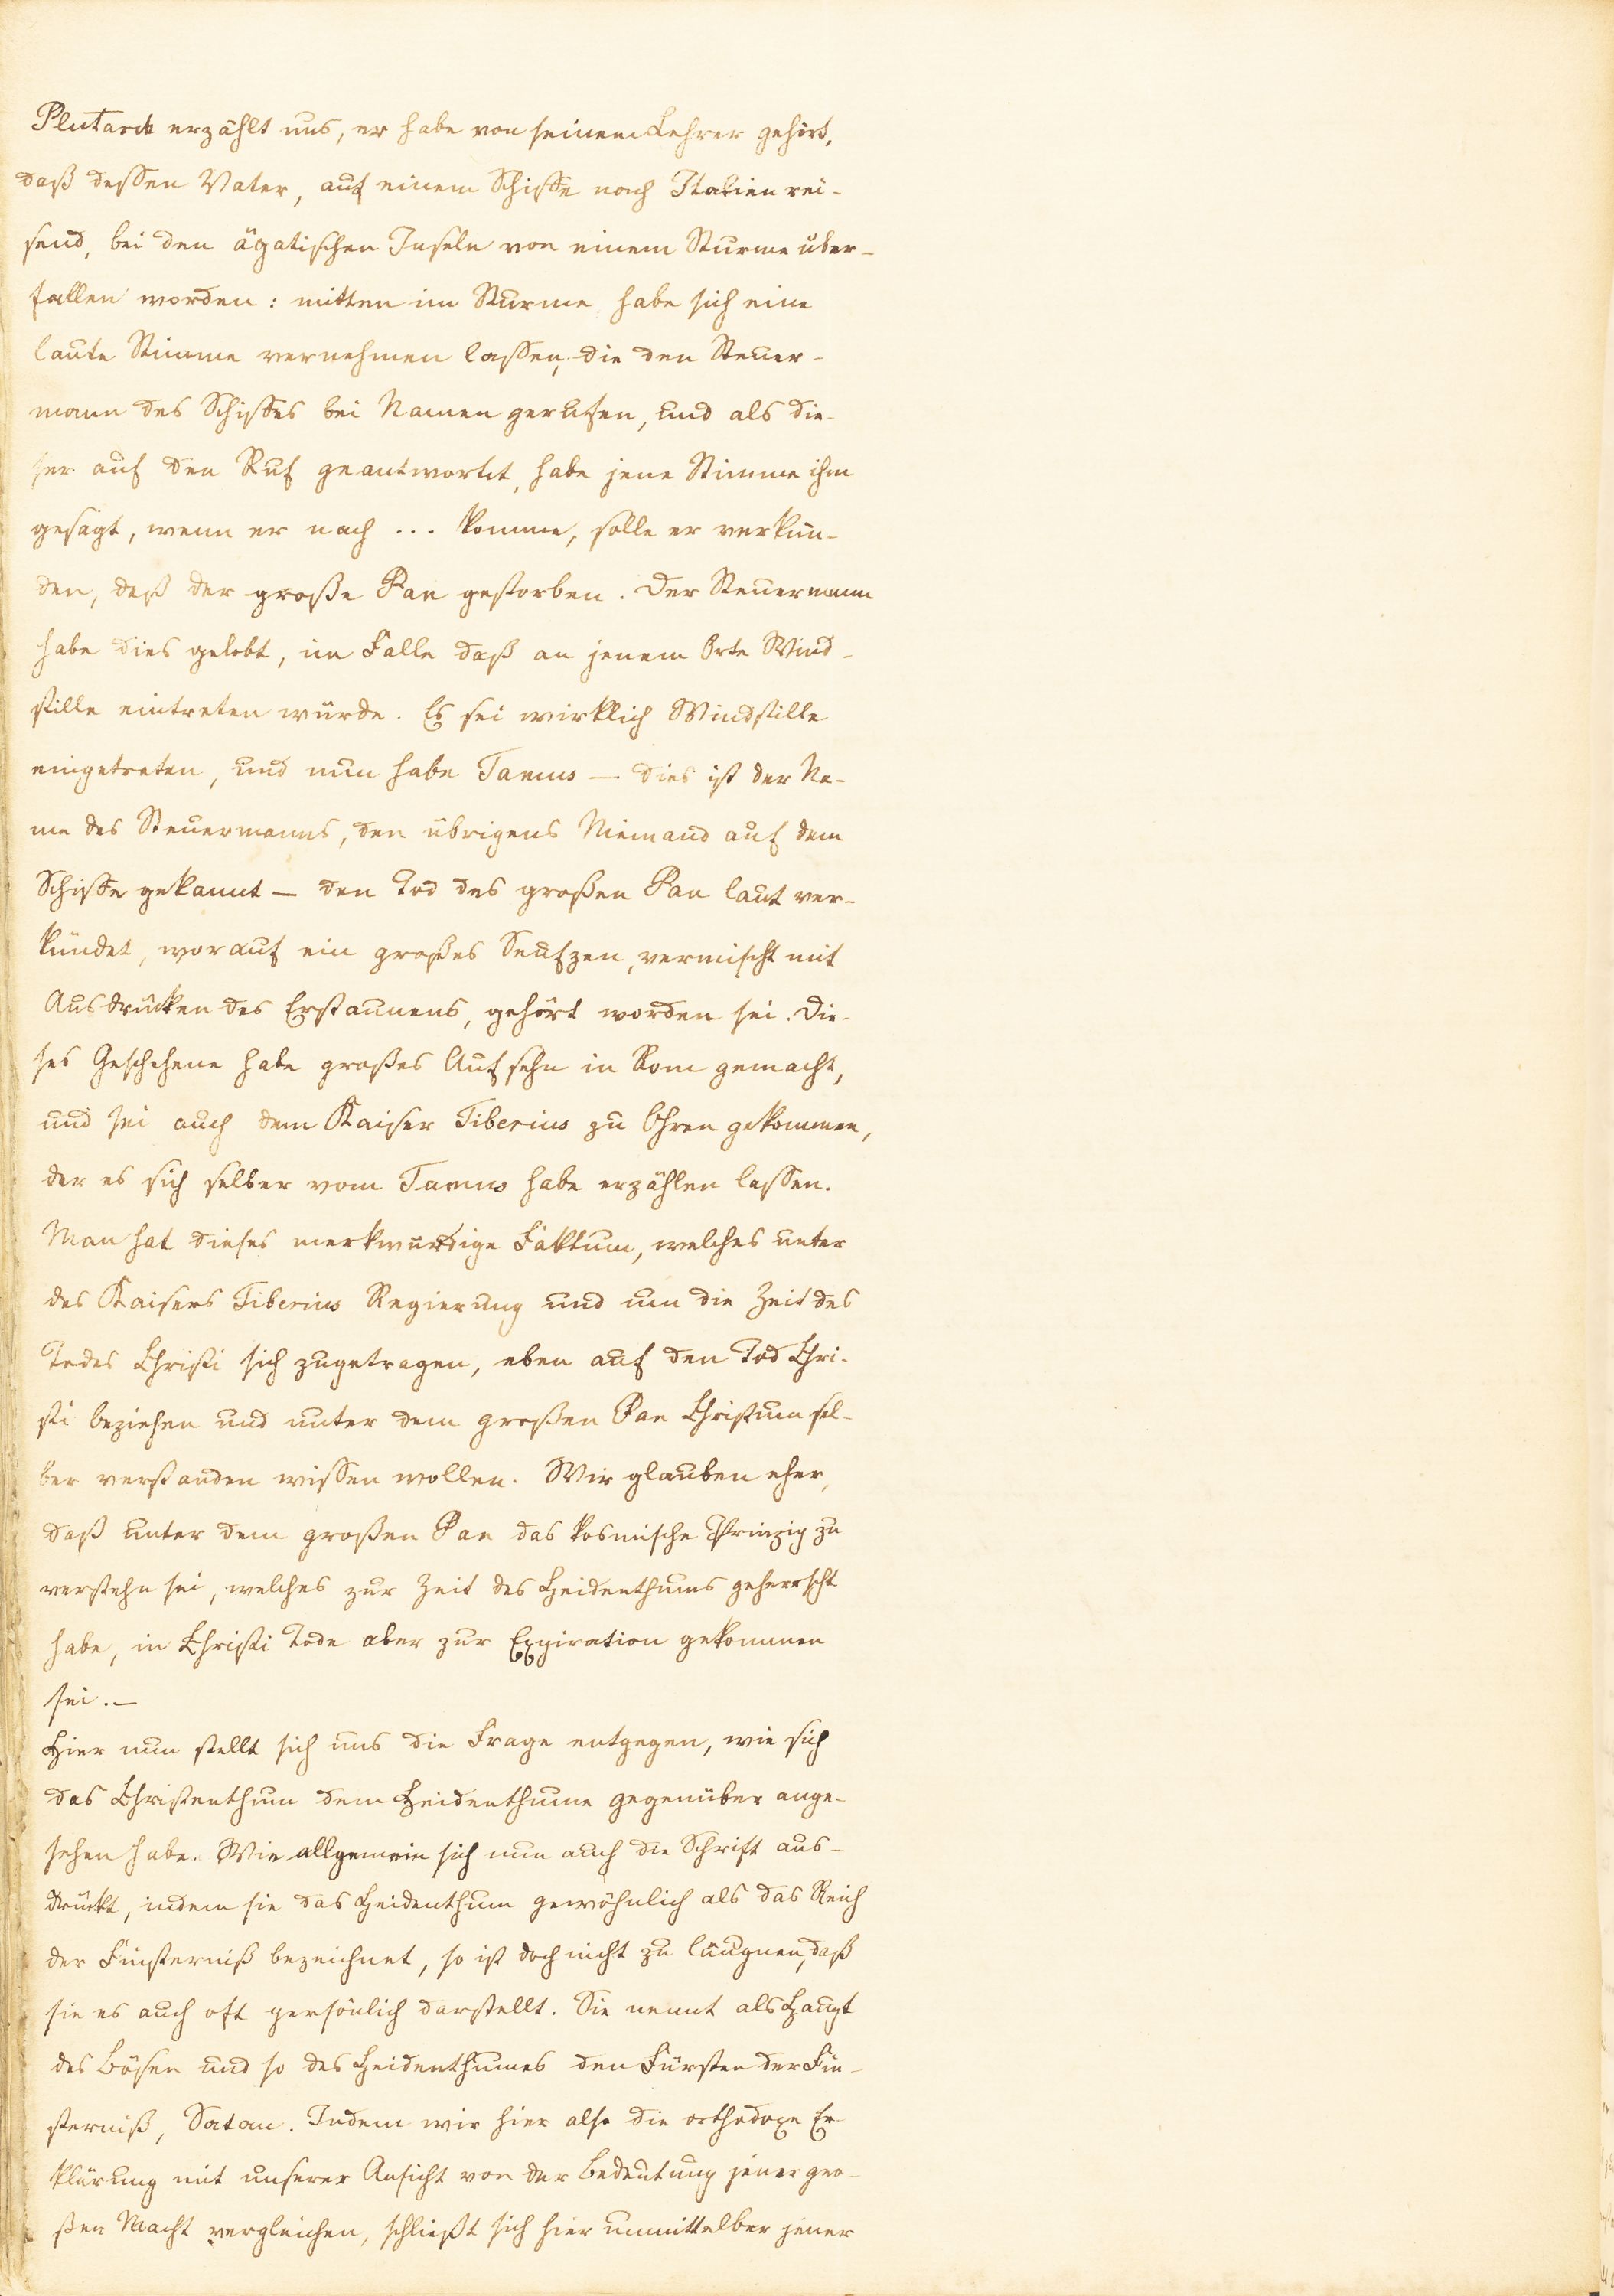 Plutarch erzählt uns, er habe von seinem Lehrer gehört,
daß dessen Vater, auf einem Schiffe nach Italien rei-
send, bei den ägatischen Inseln von einem Sturme über-
fallen worden: mitten im Sturme habe sich eine
laute Stimme vernehmen lassen, die den Steuer-
mann des Schiffes bei Namen gerufen, und als die-
ser auf den Ruf geantwortet, habe jene Stimme ihm
gesagt, wenn er nach ... komme, solle er verkün-
den, daß der große Pan gestorben. Der Steuermann
habe dies gelobt, im Falle daß an jenem Orte Wind-
stille eintreten würde. Es sei wirklich Windstille
eingetreten, und nun habe Tamus — dies ist der Na-
me des Steuermanns, den übrigens Niemand auf dem
Schiffe gekannt — den Tod des großen Pan laut ver-
kündet, worauf ein großes Seufzen, vermischt mit
Ausdrücken des Erstaunens, gehört worden sei. Die-
ses Geschehene habe großes Aufsehn in Rom gemacht,
und sei auch dem Kaiser Tiberius zu Ohren gekommen,
der es sich selber vom Tamus habe erzählen lassen.
Man hat dieses merkwürdige Faktum, welches unter
des Kaisers Tiberius Regierung und um die Zeit des
Todes Christi sich zugetragen, eben auf den Tod Chri-
sti beziehen und unter dem großen Pan Christum sel-
ber verstanden wissen wollen. Wir glauben eher,
daß unter dem großen Pan das kosmische Prinzip zu
verstehn sei, welches zur Zeit des Heidenthums geherrscht
habe, in Christi Tode aber zur Expiration gekommen
sei. —
Hier nun stellt sich uns die Frage entgegen, wie sich
das Christenthum dem Heidenthume gegenüber ange-
sehen habe. Wie allgemein sich nun auch die Schrift aus-
drückt, indem sie das Heidenthum gewöhnlich als das Reich
der Finsterniß bezeichnet, so ist doch nicht zu läugnen, daß
sie es auch oft persönlich darstellt. Sie nennt als Haupt
des Bösen und so des Heidenthumes den Fürsten der Fin-
sterniß, Satan. Indem wir hier also die orthodoxe Er-
klärung mit unserer Ansicht von der Bedeutung jener gro-
ßen Macht vergleichen, schließt sich hier unmittelbar jener